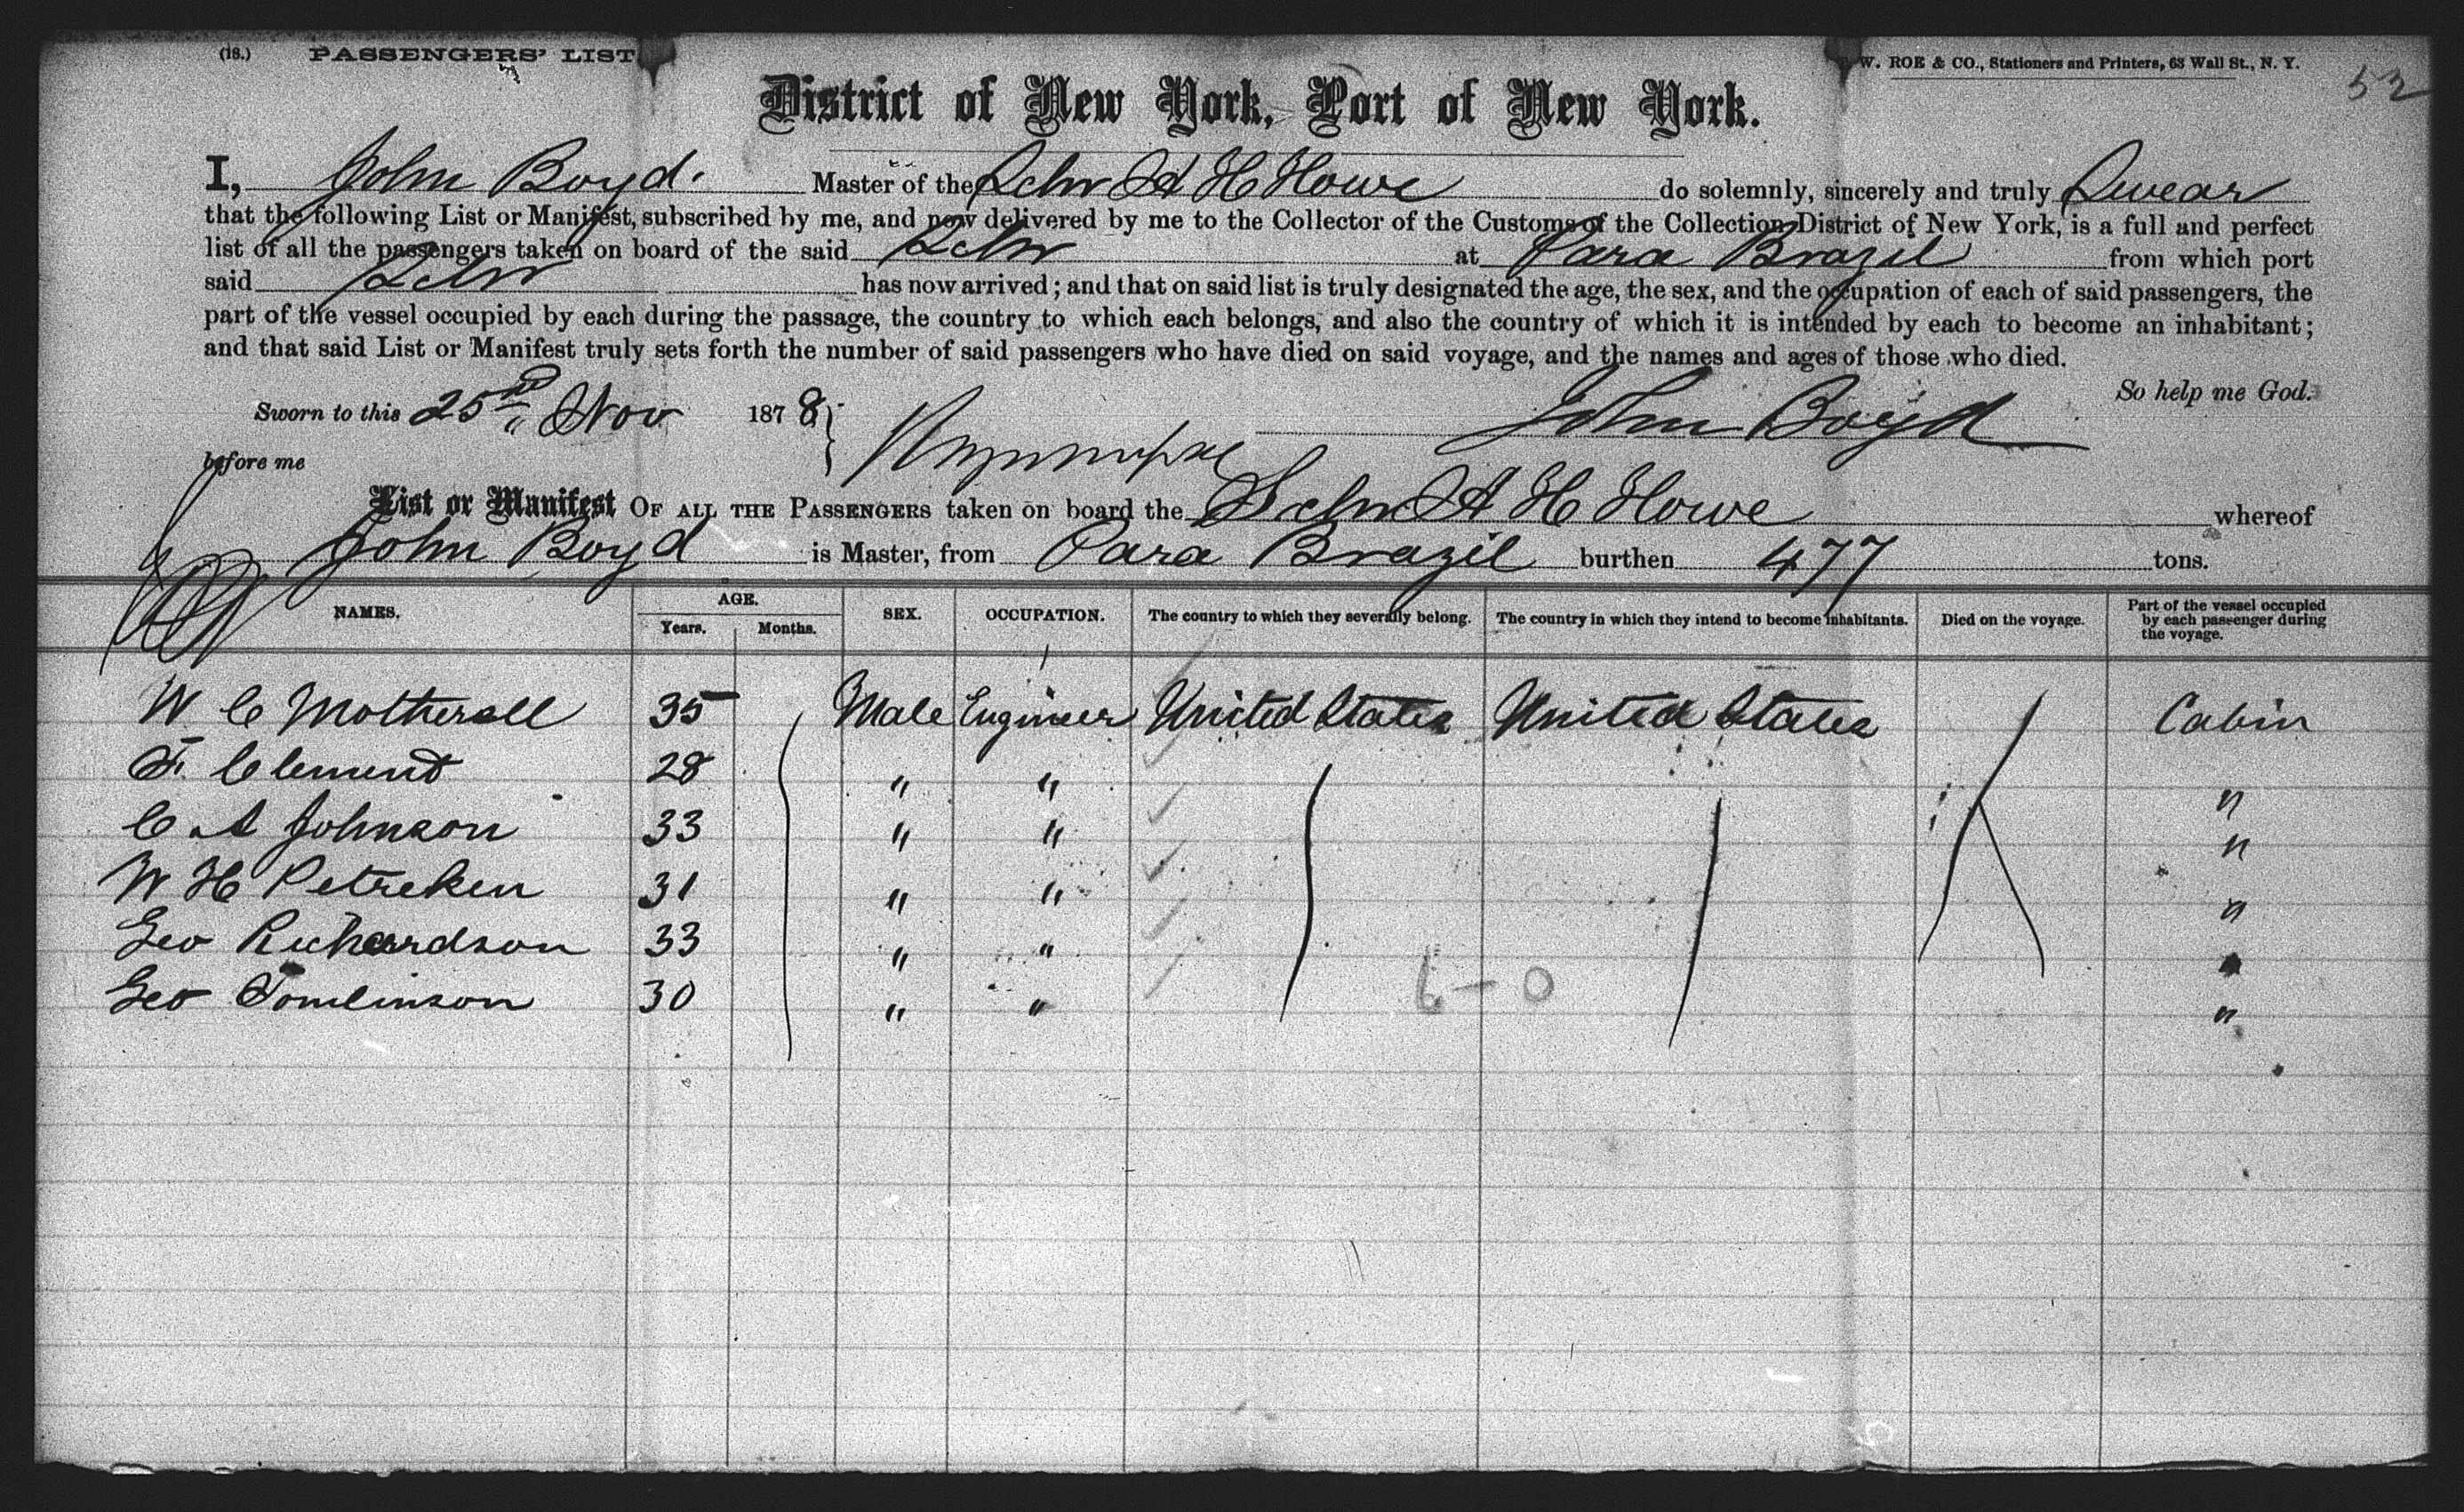 (18.) PASSENGERS' LIST
W. ROE & CO., Stationers and Printers, 63 Wall St., N. Y.
52
District of New York, Port of New York.
I, John Boyd. Master of the Schr A H Howe do solemnly, sincerely and truly Swear
that the following List or Manifest, subscribed by me, and now delivered by me to the Collector of the Customs of the Collection District of New York, is a full and perfect
list of all the passengers taken on board of the said Schr at Para Brazil from which port
said Schr has now arrived; and that on said list is truly designated the age, the sex, and the occupation of each of said passengers, the
part of the vessel occupied by each during the passage, the country to which each belongs, and also the country of which it is intended by each to become an inhabitant;
and that said List or Manifest truly sets forth the number of said passengers who have died on said voyage, and the names and ages of those who died.
So help me God.
Sworn to this 25th Nov 1878 John Boyd
before me
List or Manifest OF ALL THE PASSENGERS taken on board the Schr A H Howe whereof
John Boyd is Master, from Para Brazil burthen 477 tons.
NAMES. AGE. Years. Months. SEX. OCCUPATION. The country to which they severally belong. The country in which they intend to become inhabitants. Died on the voyage. Part of the vessel occupied by each passenger during the voyage.
W C Motherall 35 Male Engineer United States United States Cabin
F. Clement 28 " " "
C A Johnson 33 " " "
W H Petreken 31 " " "
Geo Richardson 33 " " "
Geo Tomlinson 30 " " "
6-0